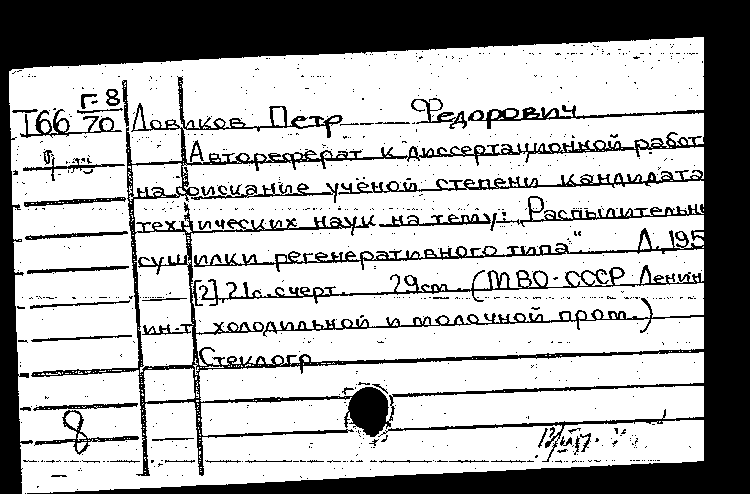 Г-8
I66 70 Ловиков, Петр Федорович
Автореферат к диссертационной работ
на соискание учёной степени кандидата
технических наук на тему: „Распылительн
сушилки регенеративного типа". Л, 195
[2], 21с. с черт. 29 см. (МВО-СССР Ленин
ин-т холодильной и молочной пром.)
Стеклогр.
8